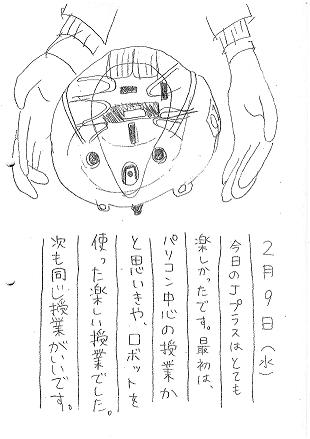 2月9日(水)
今日のJプラスはとても
楽しかったです。最初は、
パソコン中心の授業か
と思いきや、ロボットを
使った楽しい授業でした。
次も同じ授業がいいです。